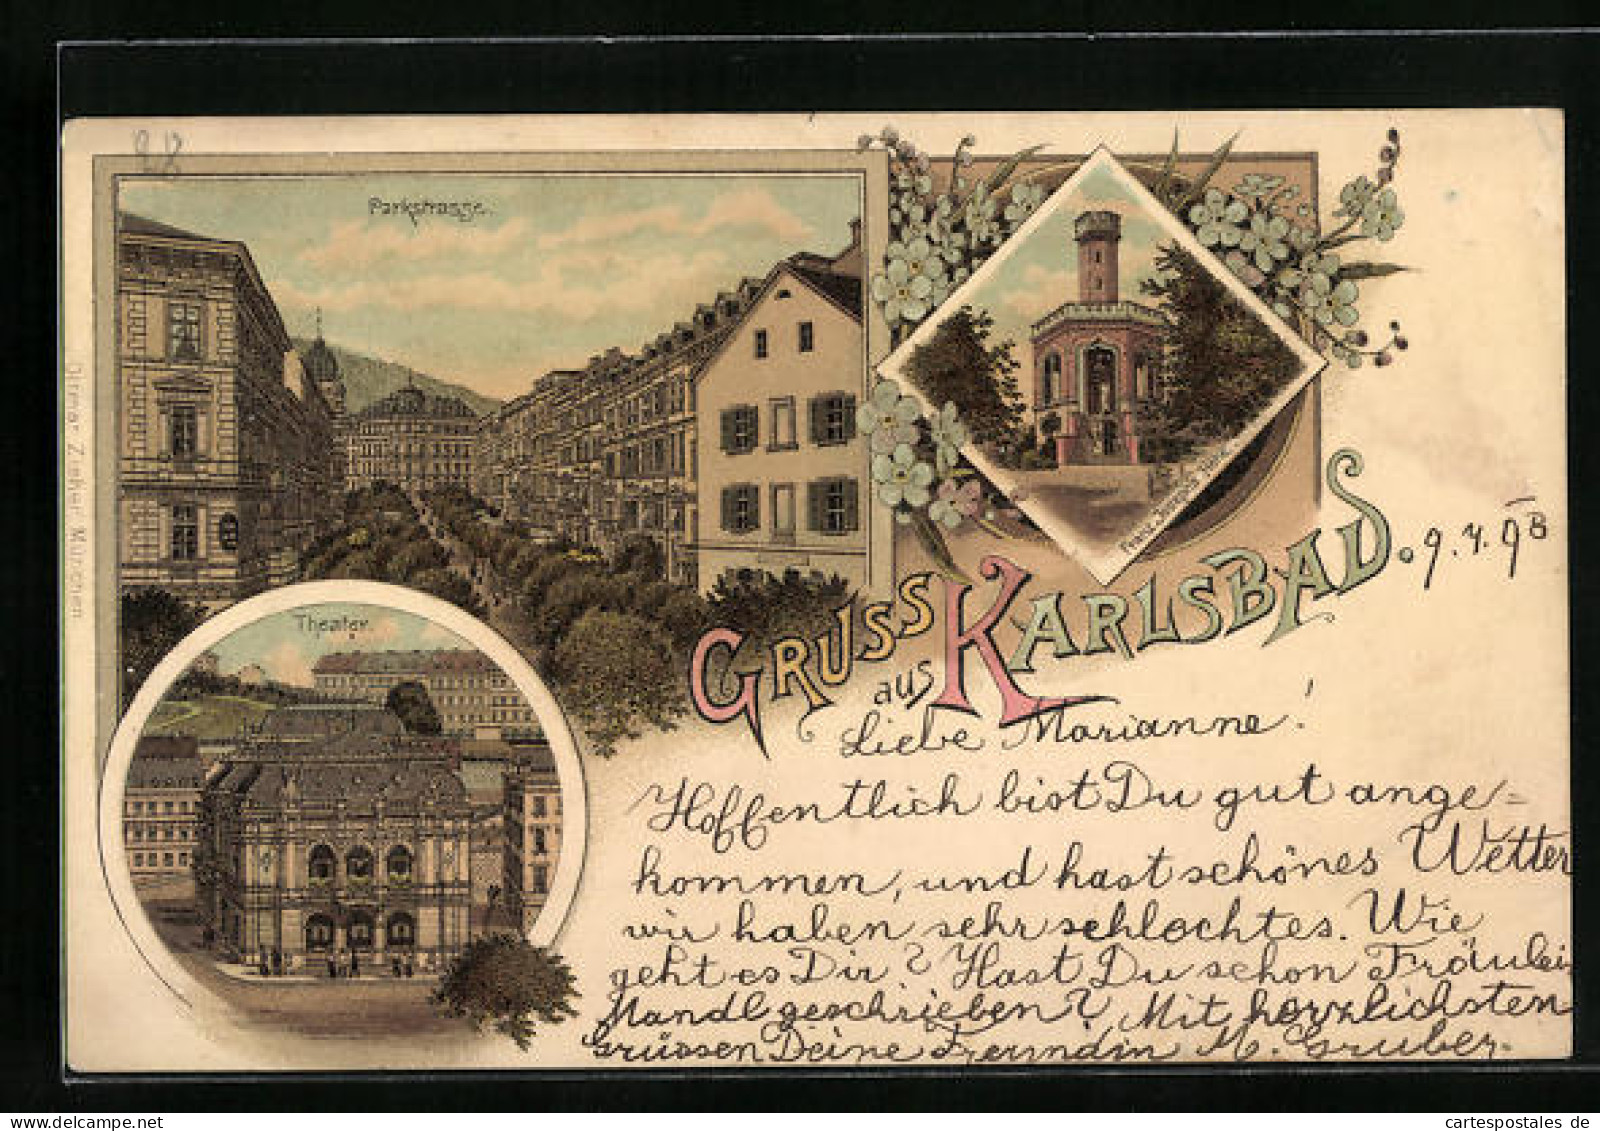 Parkstrasse.
Theater.
GRUSS
aus KARLSBAD. 9. 7. 98
Liebe Marianne!
Hoffentlich bist Du gut ange=
kommen, und hast schönes Wetter
wir haben sehr schlechtes. Wie
geht es Dir? Hast Du schon Fräulei
Mandl geschrieben? Mit herzlichsten
Grüssen Deine Freundin M. Gruber.
Ottmar Zieher, München
cartespostales.de